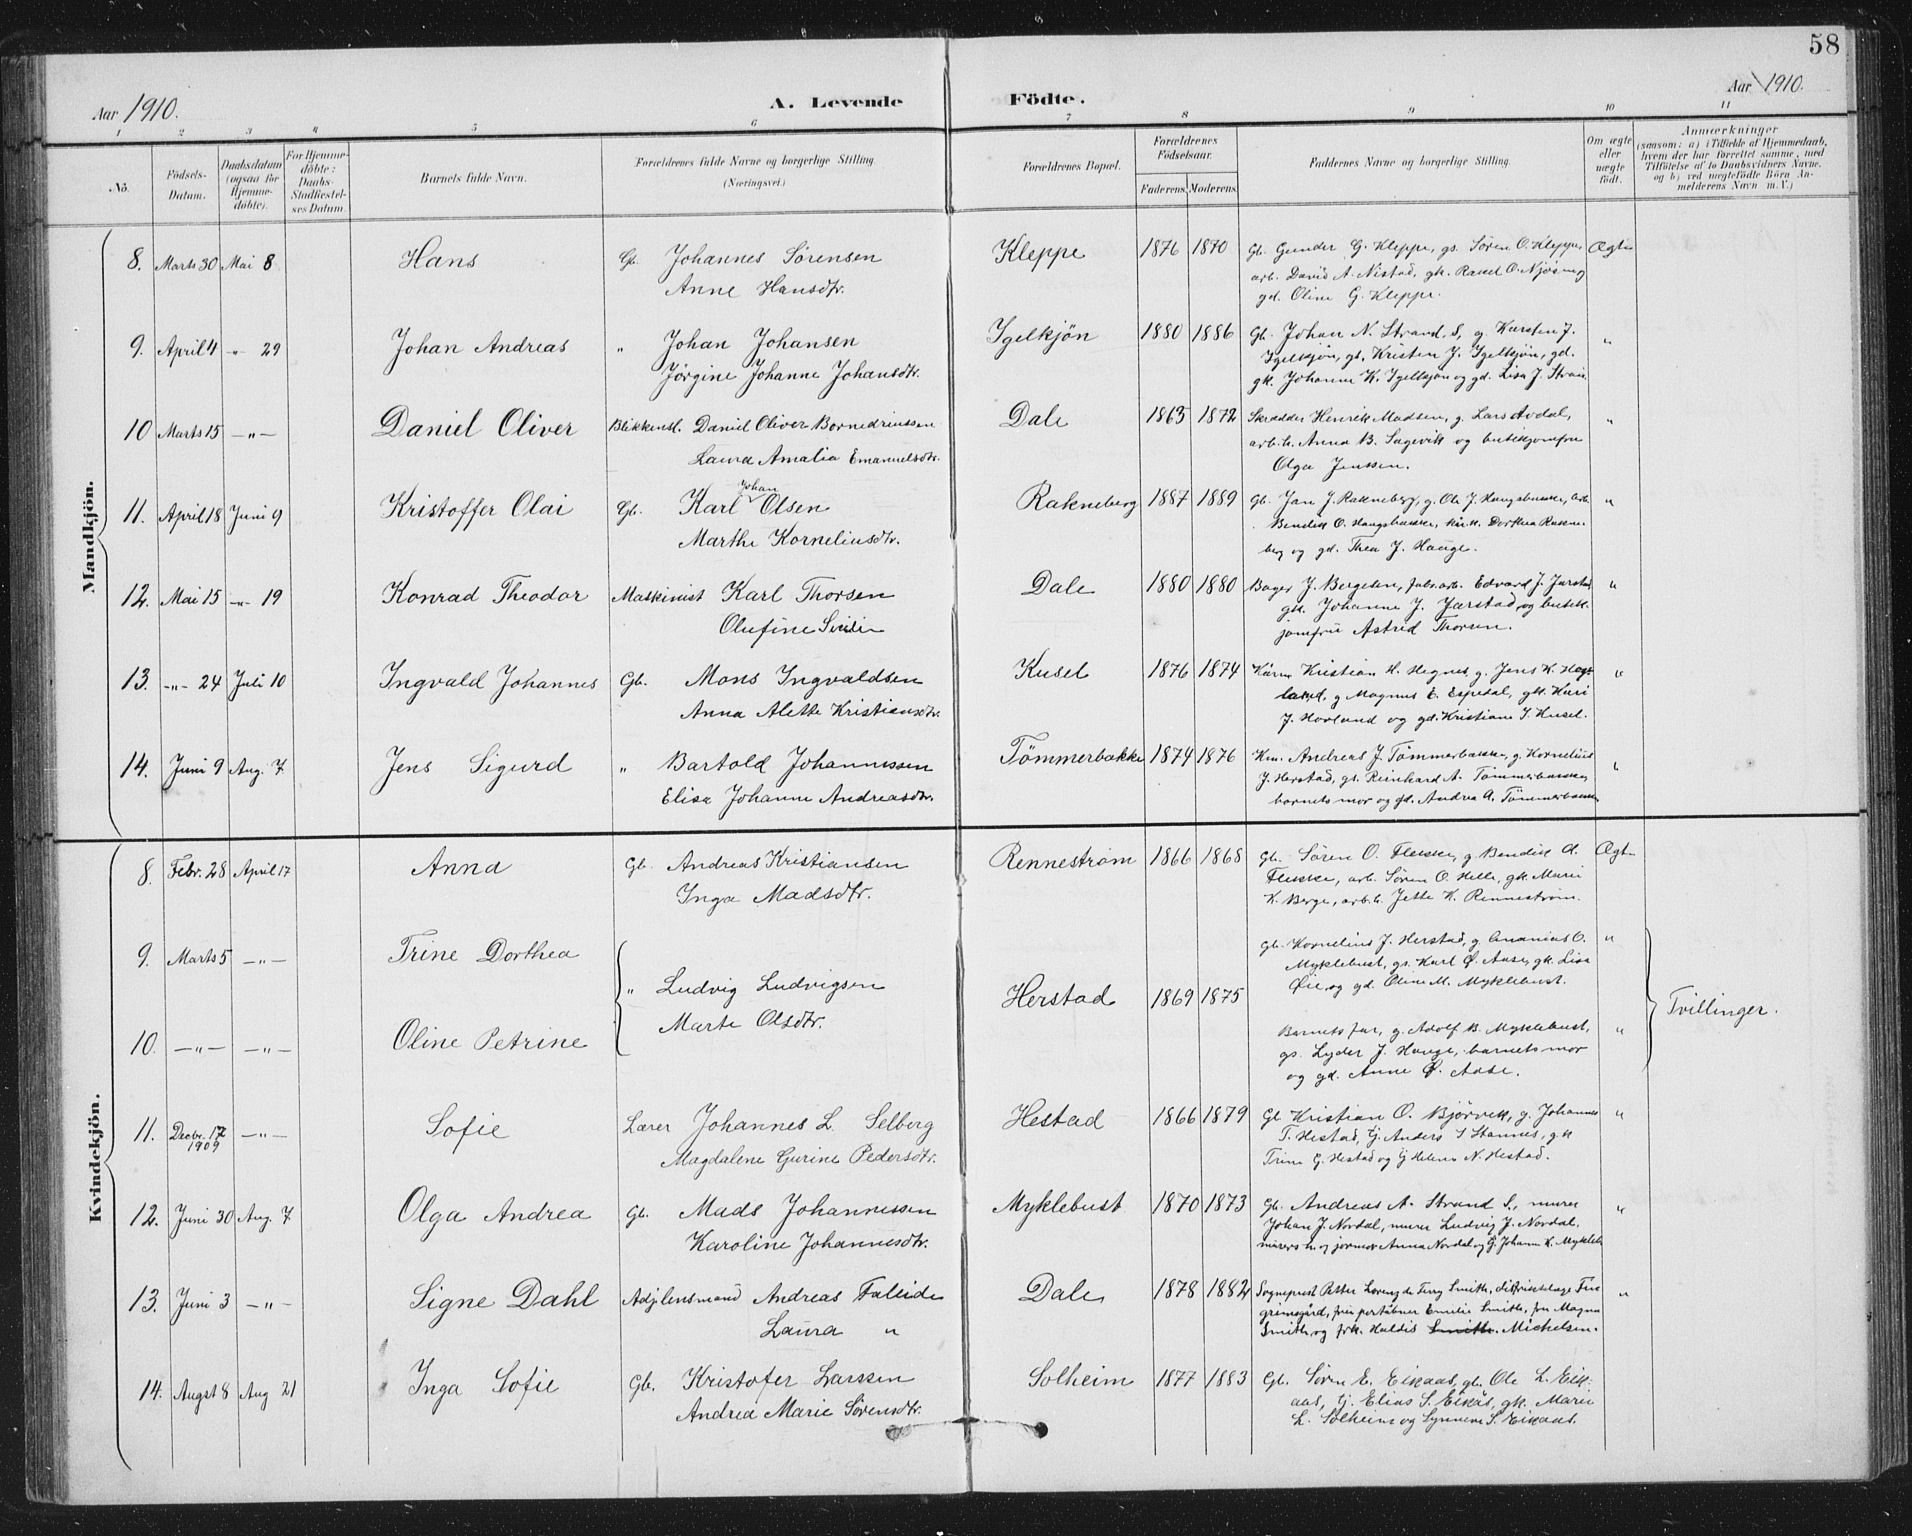 58
Aar 1910.
A. Levende Fødte.
Aar 1910.
1 2 3 4 5 6 7 8 9 10 11
No.
Fødsels-Datum.
Daabsdatum (ogsaa for Hjemme-døbte).
For Hjemme-døbte: Daabs-Stadfæstel-ses Datum
Barnets fulde Navn.
Forældrenes fulde Navne og borgerlige Stilling (Næringsvei.)
Forældrenes Bopæl.
Forældrenes Fødselsaar.
Faderens Moderens
Faddernes Navne og borgerlige Stilling.
Om ægte eller uægte født.
Anmærkninger
(saasom: a) i Tilfælde af Hjemmedaab, hvem der har forrettet samme, med Tilføielse af to Daabsvidners Navne. og b) ved uægtefødte Børn An-melderens Navn m. V.)
Mandkjön.
8. Marts 30 Mai 8 Hans Gb. Johannes Sørensen Kleppe 1876 1870 Gb. Gunder G. Kleppe, gs. Søren O. Kleppe, Ægte
Anne Hansdtr. arb. David A. Nistad, gk. Rakel O. Njøsen og
gd. Oline G. Kleppe.
9. April 4 -"- 29 Johan Andreas " Johan Johansen Igelkjøn 1880 1886 Gb. Johan N. Strand, S, g. Karsten J. "
Jørgine Johanne Johansdtr. Igelkjøn, gs. Kristen J. Igelkjøn, gd.
gk. Johanne K. Igelkjøn og gd. Lisa J. Strand.
10 Marts 15 -"- Daniel Oliver Blikkensl. Daniel Oliver Dale 1863 1872 Skrædder Henrik Madsen, g. Lars Avdal, "
Laura Amalia Emanuelsdtr. arb.h. Anna B. Sagevik og butikjomfru
Olga Jenssen.
11. April 18 Juni 9 Kristoffer Olai Gb. Karl Johan Olsen Rakneberg 1887 1889 Gb. Jan J. Rakneberg, g. Ole J. Haugsbakke, arb. "
Marthe Korneliusdtr. Bendik O. Haugsbakke, Dorthea Rakne-
berg og gd. Thea J. Hauge.
12. Mai 15 -"- 19 Konrad Theodor Maskinist Karl Thorsen Dale 1880 1880 Bager J. Bergelin, fabr.arb. Edvard J. Jarstad "
Olufine gk. Johanne J. Jarstad og butik.
jomfru Astrid Thorsen.
13. -"- 24 Juli 10 Ingvald Johannes Gb. Mons Ingvaldsen Kusel 1876 1874 Kårm. Kristian H. Hegnes, g. Jens K. "
Anna Alette Kristiansdtr. g Magnus E. Espedal, gk. Kari
J. Hovland og gd. Kristiane I. Kusel.
14. Juni 9 Aug. 7 Jens Sigurd " Bartold Johannessen Tømmerbakke 1874 1876 Km. Andreas J. Tømmerbakke, g. Kornelius "
Elisa Johanne Andreasdtr. J. Herstad, gs. Reinhard A. Tømmerbakke,
barnets mor og gd. Andrea A. Tømmerbakke
Kvindekjön.
8. Febr. 28 April 17 Anna Gb. Andreas Kristiansen Rennestrøm 1866 1868 Gb. Søren O. Flekke, g Bendik A. Ægte
Inga Madsdtr. Flekke, arb. Søren O. Helle, gk. Marie
K. Berge, arb.h. Jette K. Rennestrøm.
9. Marts 5 -"- Trine Dorthea gb. Kornelius J. Herstad, g. Ananias O. "
Myklebust, gs. Karl Ø. Aase, gk. Lisa
" Ludvig Ludvigsen Herstad 1869 1875 Øie og gd. Oline M. Myklebust.
Marte Olsdtr. Tvillinger.
10. -"- -"- Oline Petrine Barnets far, g. Adolf B. Myklebust, "
gs. Lyder J. Hauge, barnets mor
og gd. Anne Ø. Aase.
11. Decbr. 17 1909 -"- Sofie Lærer Johannes L. Selberg Hestad 1866 1879 Gb Kristian O. Bjørvik, g. Johannes "
Magdalene Gurine Pedersdtr. T. Hestad, Anders S Stannes, gk
Trine G. Hestad og Helene N. Hestad.
12. Juni 30 Aug. 7 Olga Andrea Gb. Mads Johannessen Myklebust 1870 1873 Gb. Andreas A. Strand S., murer "
Karoline Johannesdtr. Johan J. Nordal, murer Ludvig J. Nordal.
murers h. og jormor Anna Nordal og Johanne K. Mykleb.
13. Juni 3 -"- Signe Dahl Adj.lensmand Andreas Faleide Dale 1878 1882 Sogneprest Petter Lorenz de Smith, distriktslæge Fin "
Laura " fru Emilie Smith, frn Magna
Smith og frk. Haldis Smith. Michelsen.
14. Augst 8 Aug 21 Inga Sofie Gb. Kristofer Larssen Solheim 1877 1883 Gb. Søren E. Eikaas, gb. Ole L. Eik-
Andrea Marie Sørensdtr. aas, Elias S. Eikås, gk. Marie
L. Solheim og Synneve S. Eikaas.